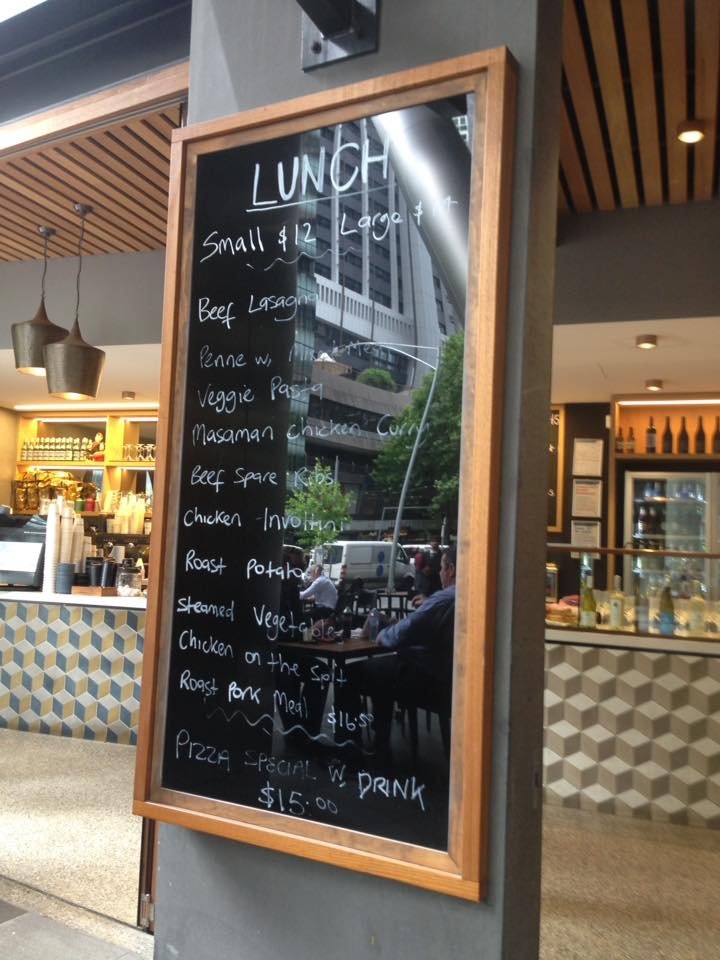 LUNCH
Small $12 Large $14
Beef Lasagna
Penne w,
Veggie Pasta
Masaman Chicken Curry
Beef Spare Ribs
Chicken Involtini
Roast Potato
Steamed Vegetable
Chicken on the Spit
Roast Pork Meal $16.50
PIZZA SPECIAL W, DRINK
$15.00